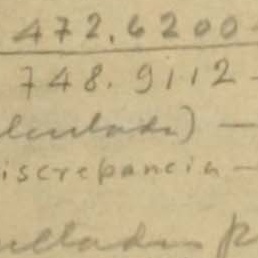 472.6200-
748.9112-
lculada) —
iscrepancia —